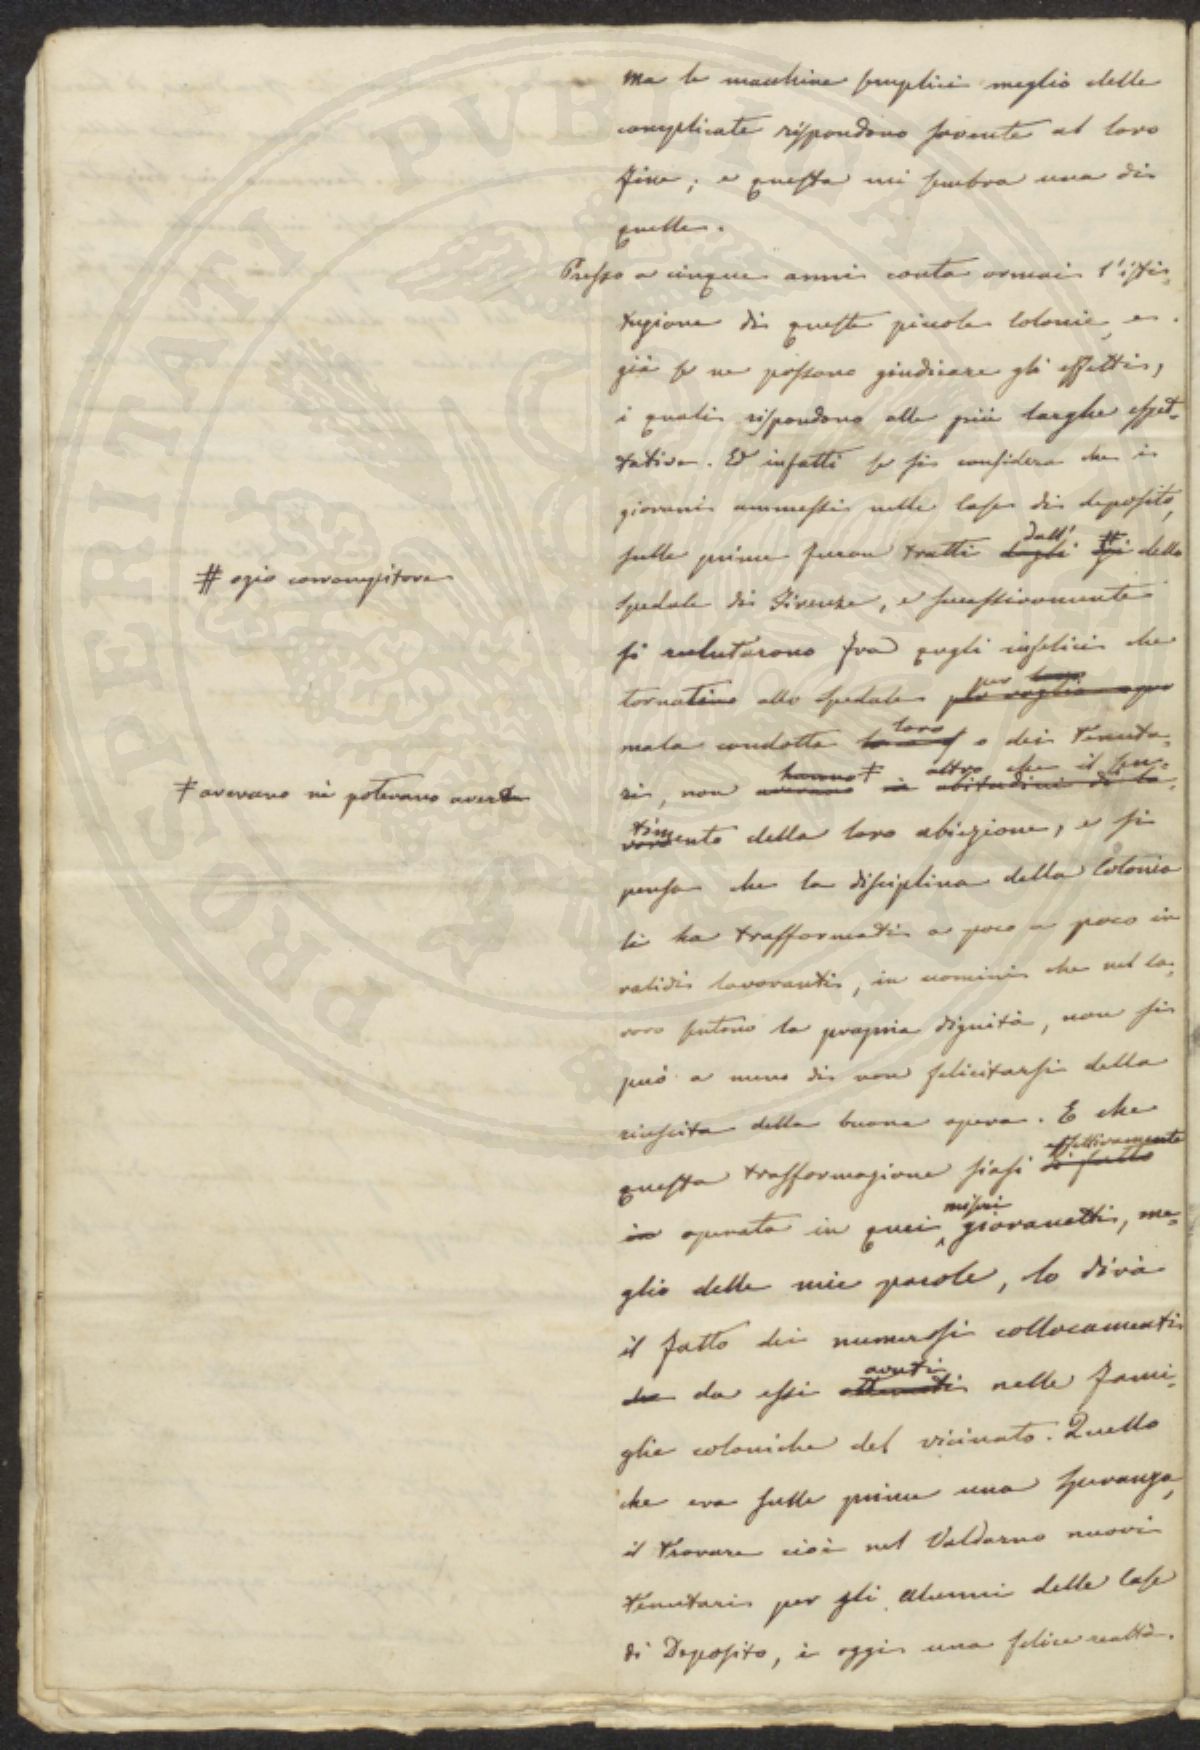 Ma le macchine semplici meglio delle
complicate rispondono sovente al loro
fine; e questa mi sembra una di
quelle.
Presso a cinque anni conta ormai l'isti-
tuzione di queste piccole Colonie, e
già se ne possono giudicare gli effetti,
i quali rispondono alle più larghe aspet-
tative. Ed infatti se si considera che i
giovani ammessi nelle Case di deposito,
dall' #
sulle prime furon tratti dagli ozi dello
# ozio corrompitore
Spedale di Firenze, e successivamente
si reclutarono fra quegli infelici che
per
tornatino allo Spedale per voglia
loro
mala condotta o dei Tenuta-
hanno ‡ altro che il sen-
ri, non avevano in abitudini di la-
‡ avevano nè potevano avere
timento della loro abiezione, e si
pensa che la disciplina della Colonia
li ha trasformati a poco a poco in
validi lavoranti, in uomini che nel la-
voro sentono la propria dignità, non si
può a meno di non felicitarsi della
riuscita della buona opera. E che
effettivamente
questa trasformazione siasi di fatto
miseri
in operata in quei giovanetti, me-
glio delle mie parole, lo dirà
il fatto dei numerosi collocamenti
avuti
da essi ottenuti nelle fami-
glie coloniche del vicinato. Quello
che era sulle prime una speranza,
il trovare cioè nel Valdarno nuovi
Tenutari per gli alunni delle Case
di Deposito, è oggi una felice realtà.
PROSPERITATI PVBLICAE